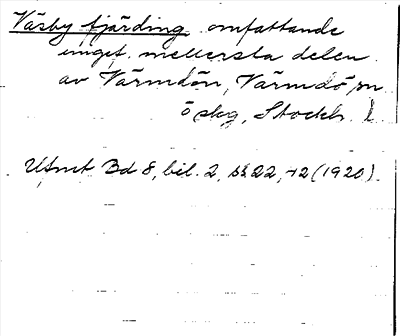 Väsby fjärding omfattande
inget mellersta delen
av Värmdön, Värmdö sn
ö slog, Stockh. l
Utnet Bd 8, bil. 2, ss 22, 72 (1920).